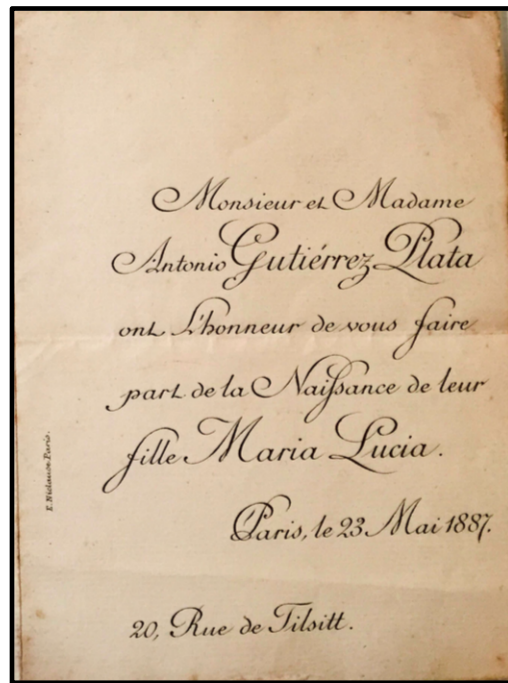 Monsieur et Madame
Antonio Gutiérrez Plata
ont l'honneur de vous faire
part de la Naiſsance de leur
fille Maria Lucia.
Paris, le 23 Mai 1887.
20, Rue de Tilsitt.
Paris.